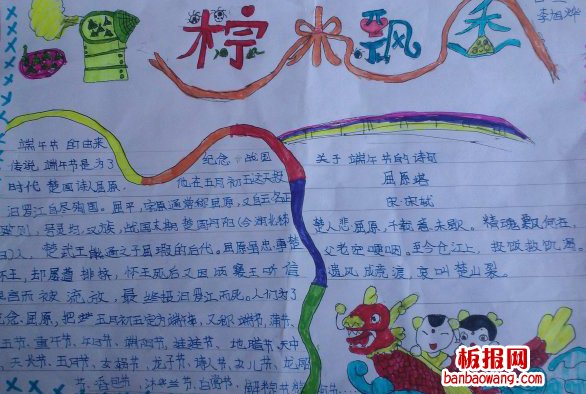 粽米飘香
李旭烨
端午节的由来
传说端午节是为了纪念战国
时代楚国诗人屈原
他在五月初五这天投
汨罗江自尽殉国。屈平,字原通常称屈原,又自云名正
则,号灵均,汉族,战国末期楚国丹阳(今湖北秭归
),楚武王熊通之子屈瑕的后代。屈原虽忠事楚
怀王,却屡遭排挤,怀王死后又因顷襄王听信
而被流放,最终投汨罗江而死。人们为了
纪念屈原,把五月初五定为端午节,又称端节、蒲节、
五节、重午节、午日节、端阳节、娃娃节、地腊节、天中
节、天长节、五月节、女娲节、龙子节、诗人节、女儿节、龙舟
节、香包节、沐兰节、白赏节、解粽节
关于端午节的诗句
屈原塔
宋·宋轼
楚人悲屈原,千载意未歇。精魂飘何在,
父老空哽咽。至今仓江上,投饭救饥渴。
遗风成竞渡,哀叫楚山裂。
板报网
banbaowang.com